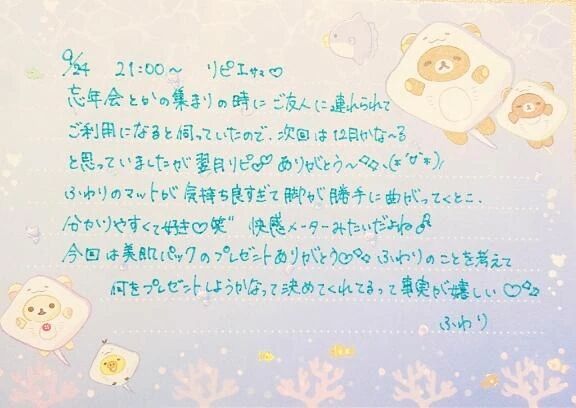 9/24 21:00～ リピエサマ♡
忘年会とかの集まりの時にご友人に連れられて
ご利用になると伺っていたので、次回は12月かな〜る
と思っていましたが翌月リピ♡ ありがとう〜♡♡ ヽ(*'▽'*)ﾉ
ふわりのマットが気持ち良すぎて脚が勝手に曲がってくとこ、
分かりやすくて好き♡笑" 快感メーターみたいだよね♪
今回は美肌パックのプレゼントありがとう♡♡ ふわりのことを考えて
何をプレゼントしようかなって決めてくれてるって事実が嬉しい♡♡
ふわり